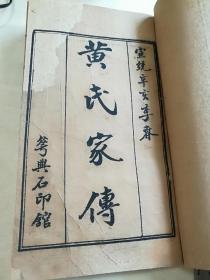 宣統辛亥季春
黃氏家傳
粤興石印館